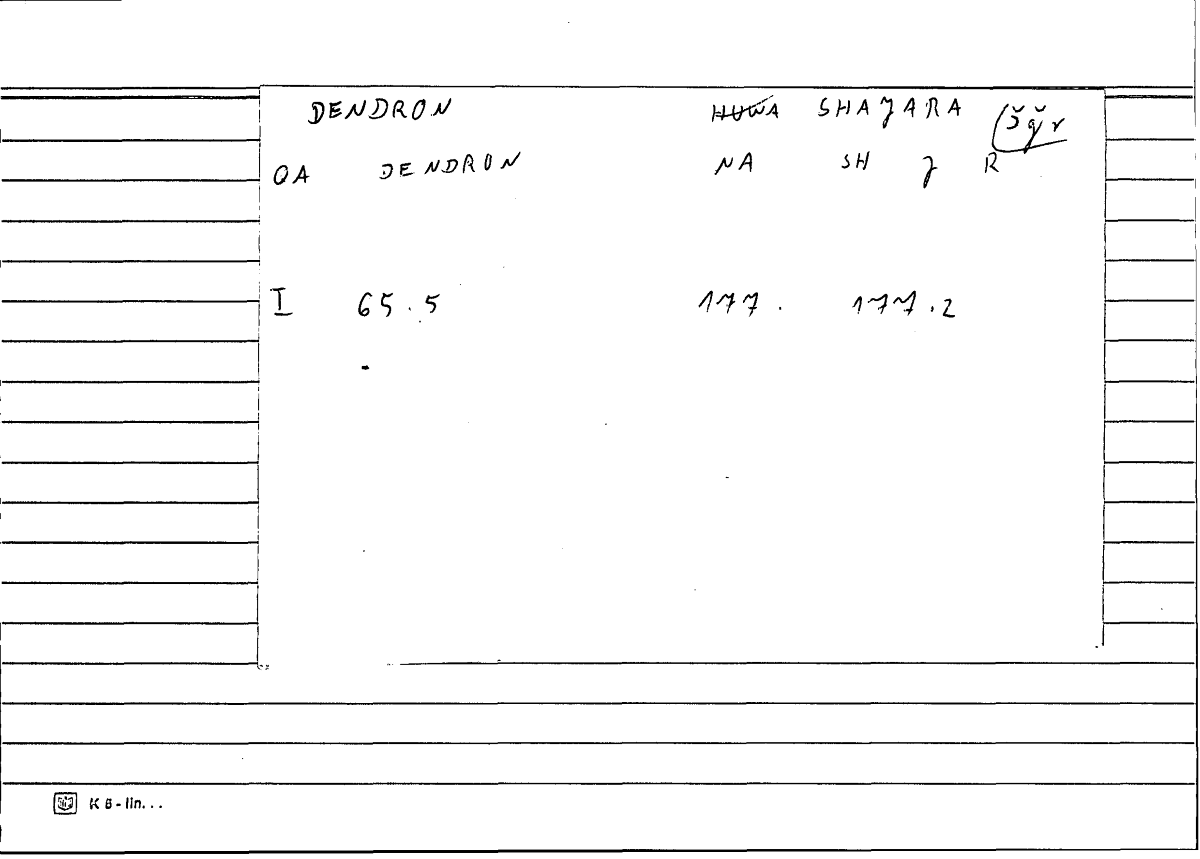 DENDRON HUWA SHAJARA (šǧr
OA DENDRON NA SH J R
I 65.5 177. 177.2
K 6-lin...